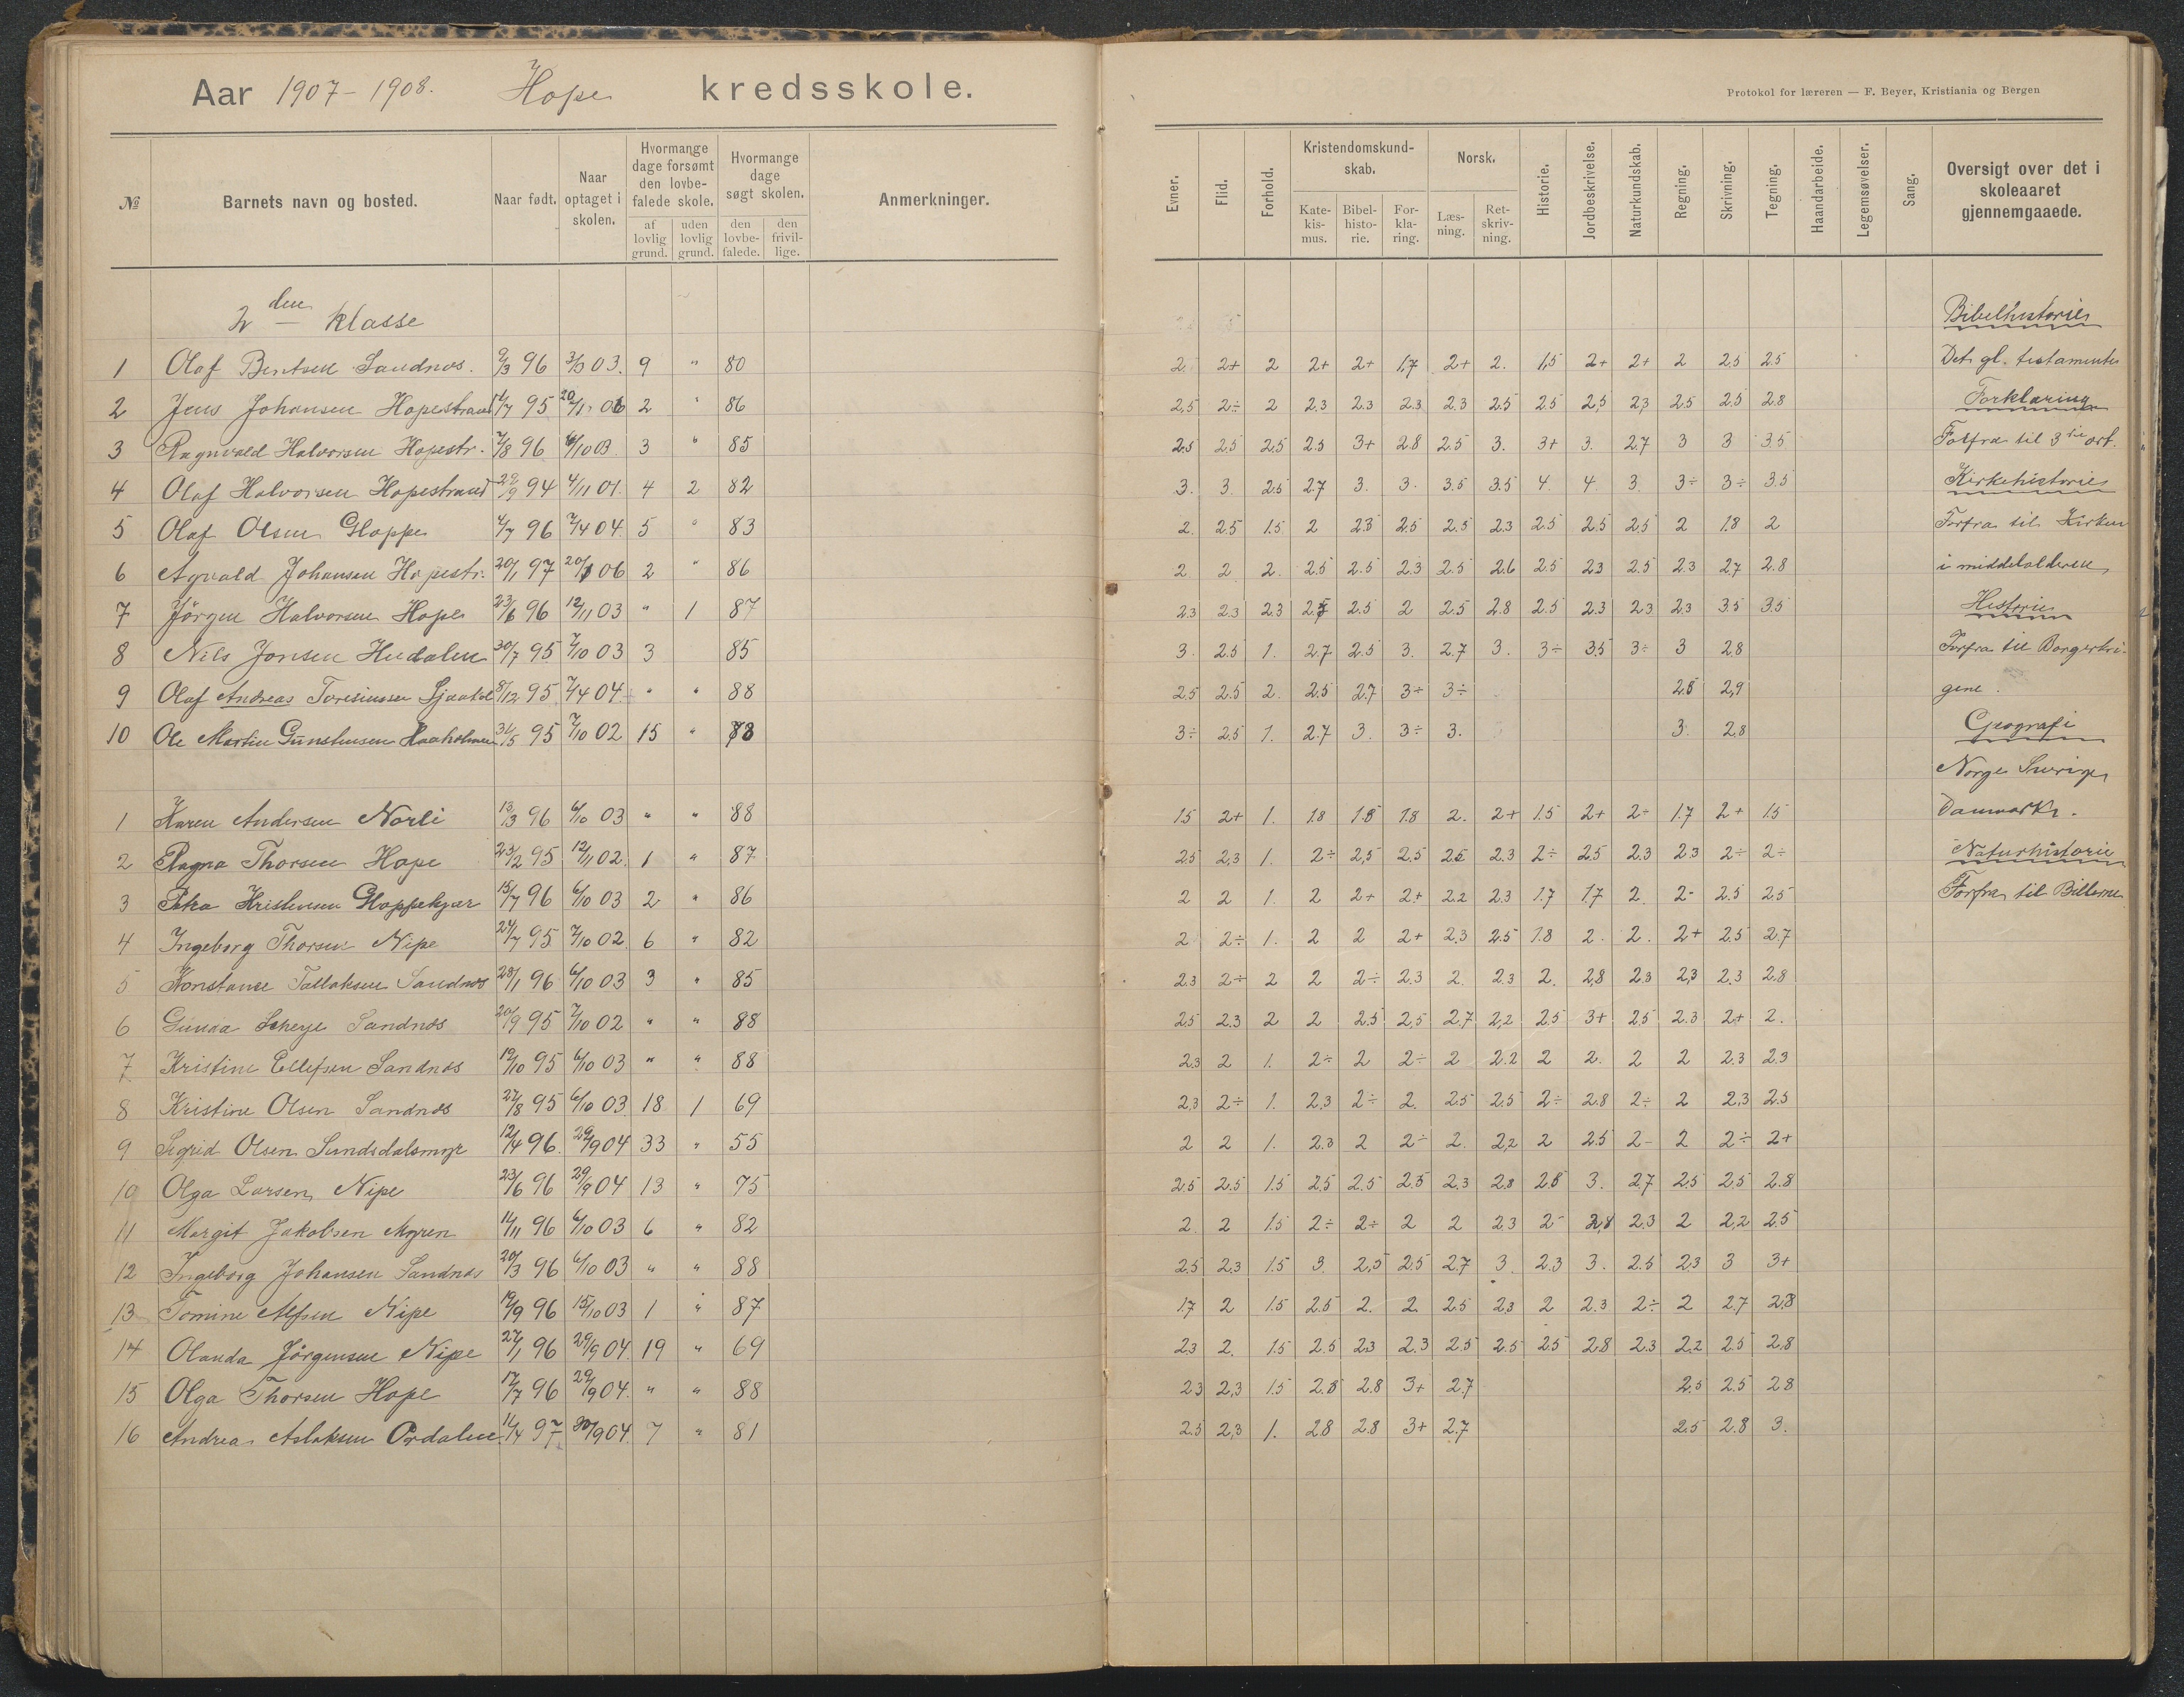 Aar 1907-1908. Hope kredsskole.
Protokol for læreren — F. Beyer, Kristiania og Bergen
№ Barnets navn og bosted. Naar født. Naar optaget i skolen. Hvormange dage forsømt den lovbefalede skole. af lovlig grund. uden lovlig grund. Hvormange dage søgt skolen. den lovbefalede. den frivillige. Anmerkninger.
Evner. Flid. Forhold. Kristendomskundskab. Katekismus. Bibelhistorie. Forklaring. Norsk. Læsning. Retskrivning. Historie. Jordbeskrivelse. Naturkundskab. Regning. Skrivning. Tegning. Haandarbeide. Legemsøvelser. Sang. Oversigt over det i skoleaaret gjennemgaaede.
2den klasse Bibelhistorie
1 Olaf Bentsen Sandnes. 9/3 96 03. 9 " 80 2. 2+ 2 2+ 2+ 1,7 2+ 2. 1,5 2+ 2+ 2 2,5 2.5 Det gl. testamente
2 Jens Johansen Hopestrand 95 2 " 86 2,5 2÷ 2 2,3 2.3 2.3 2.3 2.5 2.5 2,5 2,3 2.5 2.5 2.8 Forklaring
3 Ragnvald Halvorsen Hopestr. 7/8 96 6/10 03 3 " 85 2.5 2,5 2,5 2.5 3+ 2.8 2.5 3. 3+ 3. 2.7 3 3 3.5 til 3die art.
4 Olaf Halvorsen Hopestrand 29/9 94 4/11 01. 4 2 82 3. 3. 2.5 2.7 3. 3. 3.5 3.5 4. 4. 3. 3÷ 3÷ 3.5 Kirkehistorie
5 Olaf Olsen Gloppe 4/7 96 7/4 04. 5 " 83 2. 2.5 1.5 2 2.3 2.5 2.5 2.3 2.5 2.5 2,5 2 1.8 2 Forfra til Kirken
6 Agvald Johansen Hopestr. 20/1 97 20/1 06 2 " 86 2. 2 2. 2.5 2.5 2.3 2.5 2.6 2.5 2.3 2.5 2.3 2.7 2.8 i middelalderen
7 Jörgen Halvorsen Hope 23/6 96 12/11 03 " 1 87 2.3 2.3 2.3 2.5 2 2.5 2.8 2.5 2.3 2.3 2,3 3.5 3.5 Historie
8 Nils Jonsen Hudalen 30/7 95 7/10 03 3 85 3. 2.5 1. 2.7 2.5 3. 2.7 3. 3÷ 3.5 3÷ 3 2.8 Forfra til Borgerkri-
9 Olaf Andreas 8/12 95 7/4 04. " " 88 2.5 2.5 2. 2.5 2.7 3+ 3÷ 2.8 2,9 gene.
10 Ole Martin 31/5 95 7/10 02 15 " 73 3÷ 2.5 1. 2.7 3. 3÷ 3. 3. 2,8 Geografi
Norge Sverige
1 Karen Andersen Norli 13/3 96 6/10 03 " " 88 1.5 2+ 1. 1.8 1.8 1.8 2. 2+ 1.5 2+ 2÷ 1.7 2+ 1.5 Danmark.
2 Ragna Thorsen Hope 23/2 95 12/11 02. 1 " 87 2.5 2,3 1. 2÷ 2,5 2.5 2.5 2.3 2÷ 2.5 2.3 2.3 2÷ 2÷ Naturhistorie
3 Petra Kristensen Gloppekjær 15/7 96 6/10 03 2 " 86 2 2 1. 2 2+ 2+ 2.2 2.3 1.7 1.7 2. 2- 2.5 2.5 Forfra til Billerne
4 Ingeborg Thorsen Nipe 24/7 95 7/10 02. 6 " 82 2 2÷ 1. 2 2 2+ 2,3 2.5 1.8 2. 2. 2+ 2.5 2.7
5 Konstance Tallaksen Sandnes 28/1 96 6/10 03 3 " 85 2.3 2÷ 2 2 2÷ 2.3 2. 2.3 2. 2,8 2.3 2,3 2.3 2.8
6 Gunda Scheye Sandnes 20/9 95 7/10 02 " " 88 2.5 2.3 2 2 2.5 2,5 2.7 2,2 2.5 3+ 2.5 2.3 2+ 2.
7 Kristine Ellefsen Sandnes 19/10 95 6/10 03 " " 88 2.3 2 1. 2÷ 2 2÷ 2 2.2 2 2. 2 2 2.3 2.3
8 Kristine Olsen Sandnes 27/8 95 6/10 03 18 1 69 2,3 2÷ 1. 2,3 2÷ 2. 2.5 2.5 2÷ 2.8 2÷ 2 2,3 2.5
9 Sigrid Olsen Sundsdalsmyr 12/4 96. 29/9 04 33 " 55 2 2 1. 2.3 2 2÷ 2. 2,2 2 2.5 2- 2 2÷ 2+
10 Olga Larsen Nipe 23/6 96 29/9 04 13 " 75 2.5 2.5 1.5 2.5 2.5 2.5 2.3 2.8 2.8 3. 2.7 2.5 2.5 2.8
11 Margit Jakobsen Myren 11/11 96 6/10 03 6 " 82 2. 2 1.5 2÷ 2÷ 2 2 2.3 2- 2,8 2,3 2 2,2 2.5
12 Ingeborg Johansen Sandnes 20/3 96 6/10 03 " " 88 2.5 2,3 1.5 3. 2,5 2.5 2.7 3. 2.3 3. 2.5 2,3 3 3+
13 Tomine Alfsen Nipe 19/9 96 15/10 03 1 " 87 1.7 2 1.5 2.5 2. 2. 2.5 2,3 2 2.3 2÷ 2 2.7 2.8
14 Olanda Jörgensen Nipe 27/1 96 29/9 04. 19 " 69 2.3 2. 1.5 2.5 2.3 2.3 2.5 2.5 2.5 2.8 2.3 2.2 2.5 2.8
15 Olga Thorsen Hope 17/7 96 29/9 04. " " 88 2.3 2,3 1.5 2.8 2.8 3+ 2.7 2.5 2.5 2.8
16 Andrea Aslaksen Ordalen 11/4 97 30/9 04. 7 " 81 2.5 2,3 1. 2.8 2.8 3+ 2.7 2.5 2.8 3.